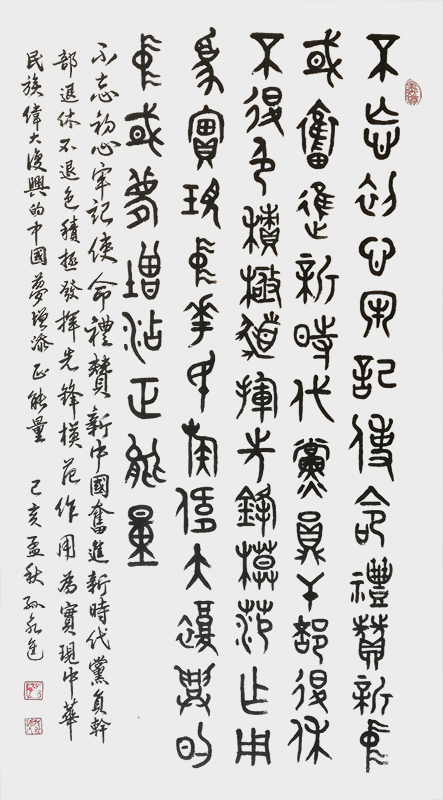 不忘初心牢記使命禮贊新中
國奮進新時代黨員幹部退休
不退色積極發揮先鋒模範作用
為實現中華民族偉大復興的
中國夢增添正能量
不忘初心牢記使命禮贊新中國奮進新時代黨員幹
部退休不退色積極發揮先鋒模範作用為實現中華
民族偉大復興的中國夢增添正能量 己亥孟秋